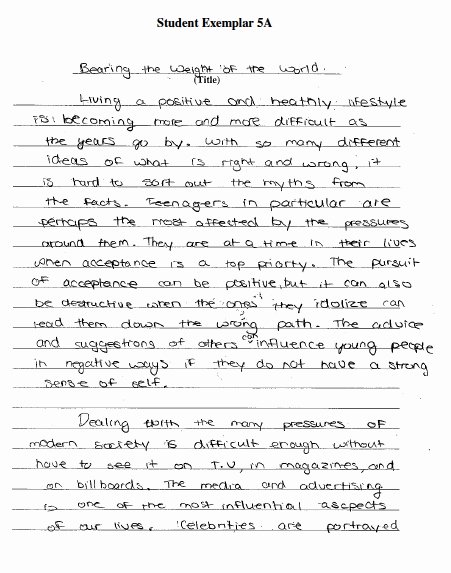 Student Exemplar 5A
Bearing the Weight of the World.
(Title)
Living a positive and heathly lifestyle
is becoming more and more difficult as
the years go by. With so many different
ideas of what is right and wrong, it
is hard to sort out the myths from
the facts. Teenagers in particular are
perhaps the most affected by the pressures
around them. They are at a time in their lives
when acceptance is a top priorty. The pursuit
of acceptance can be positive, but it can also
be destructive when the "ones" they idolize can
lead them down the wrong path. The advice
and suggestions of others can influence young people
in negative ways if they do not have a strong
sense of self.
Dealing with the many pressures of
modern society is difficult enough without
have to see it on T.V, in magazines, and
on billboards. The media and advertising
is one of the most influential ascpects
of our lives. Celebrities are portrayed